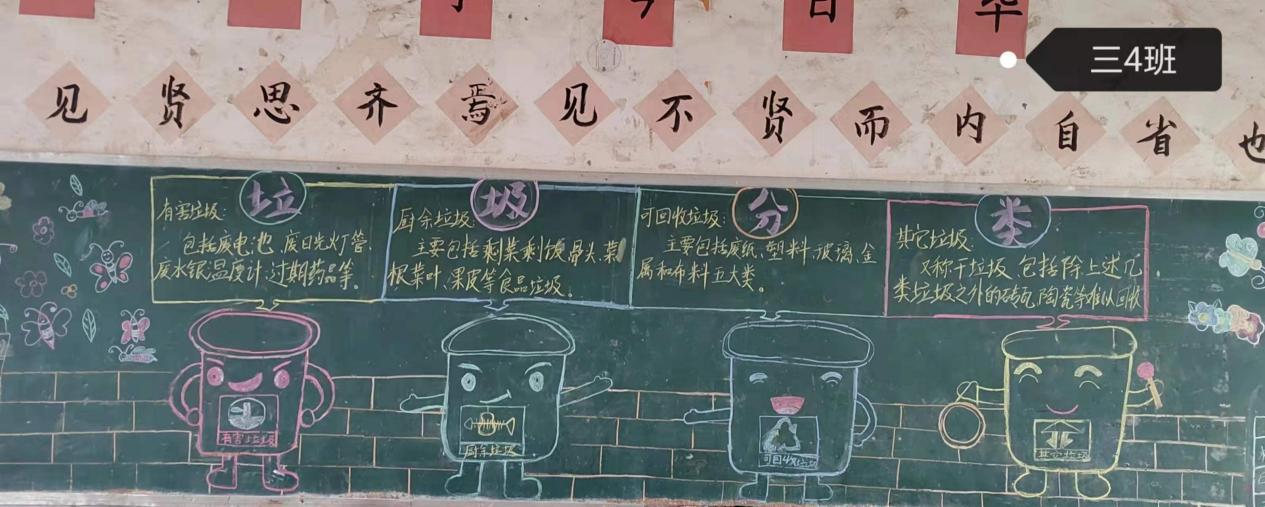 今 日 华
三4班
见贤思齐焉见不贤而内自省也
垃圾分类
有害垃圾:
包括废电池、废日光灯管、
废水银温度计、过期药品等。
厨余垃圾:
主要包括剩菜剩饭、骨头、菜
根菜叶、果皮等食品垃圾。
可回收垃圾:
主要包括废纸、塑料、玻璃、金
属和布料五大类。
其它垃圾:
又称干垃圾,包括除上述几
类垃圾之外的砖瓦、陶瓷等难以回收
有害垃圾
厨余垃圾
可回收垃圾
其它垃圾